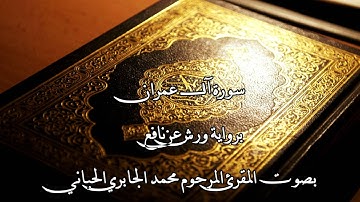 سورة آل عمران
برواية ورش عن نافع
بصوت المقرئ المرحوم محمد الجابري الحياني